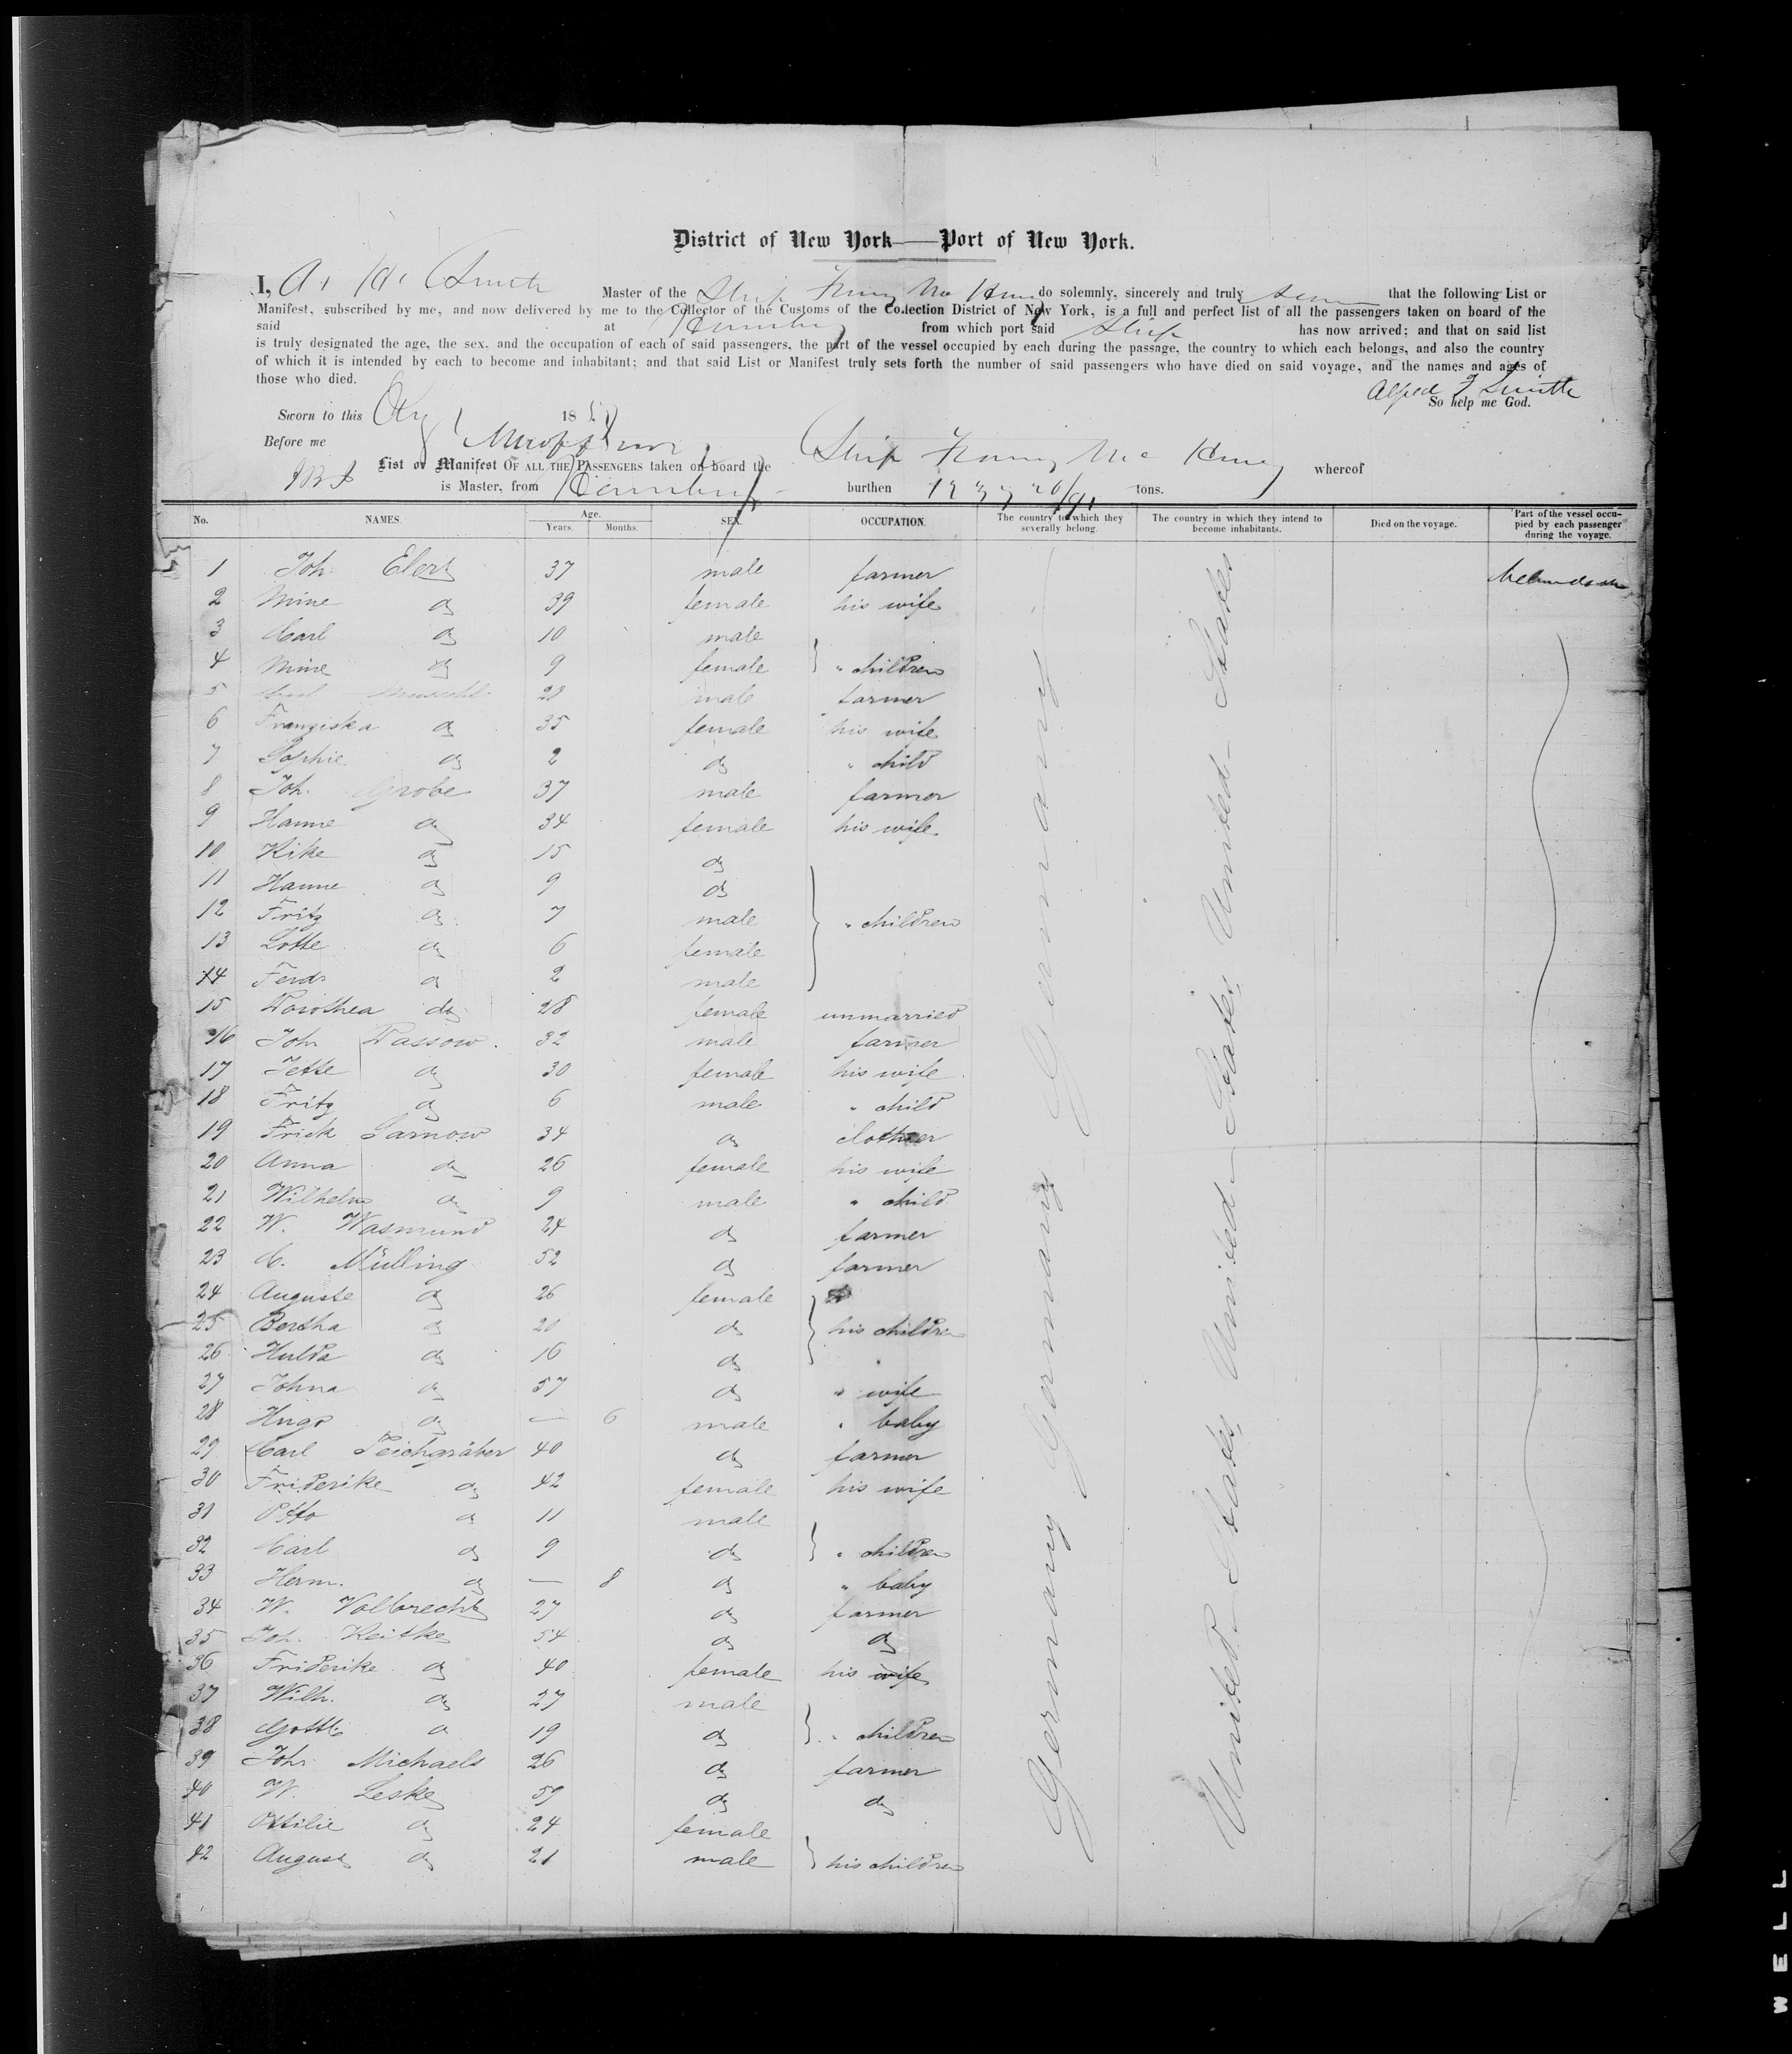 District of New York — Port of New York.
I, A. H. Smith Master of the Ship do solemnly, sincerely and truly that the following List or
Manifest, subscribed by me, and now delivered by me to the Collector of the Customs of the Collection District of New York, is a full and perfect list of all the passengers taken on board of the
said at from which port said Ship has now arrived; and that on said list
is truly designated the age, the sex, and the occupation of each of said passengers, the part of the vessel occupied by each during the passage, the country to which each belongs, and also the country
of which it is intended by each to become and inhabitant; and that said List or Manifest truly sets forth the number of said passengers who have died on said voyage, and the names and ages of
those who died.
Alfred Smith
So help me God.
Sworn to this 185
Before me
List or Manifest OF ALL THE PASSENGERS taken on board the Ship whereof
is Master, from burthen tons.
No. NAMES. Age. Years. Months. SEX. OCCUPATION. The country to which they severally belong. The country in which they intend to become inhabitants. Died on the voyage. Part of the vessel occupied by each passenger during the voyage.
1 Joh. Elert 37 male farmer
2 Mine do 39 female his wife
3 Carl do 10 male
4 Mine do 9 female } " children
5 28 male farmer
6 Franziska do 35 female his wife
7 Sophie do 2 do " child
8 Joh. Grobe 37 male farmer
9 Hanne do 34 female his wife
10 Rike do 15 do
11 Hanne do 9 do
12 Fritz do 7 male } " children
13 Lotte do 6 female
14 Ferd. do 2 male
15 Dorothea do 28 female unmarried
16 Joh Dassow 32 male farmer
17 Jette do 30 female his wife
18 Fritz do 6 male " child
19 Frick Sarnow 34 do clother
20 Anna do 26 female his wife
21 Wilhelm do 9 male " child
22 W. Wasmund 24 do farmer
23 C. Mülling 52 do farmer
24 Auguste do 26 female
25 Bertha do 20 do } his children
26 Hulda do 16 do
27 Johna do 57 do " wife
28 Hugo do — 6 male " baby
29 Carl Teichgräber 40 do farmer
30 Friderike do 42 female his wife
31 Otto do 11 male
32 Carl do 9 do } " children
33 Herm. do — 8 do " baby
34 W. Volbrecht 27 do farmer
35 Joh. Reitke 54 do do
36 Friderike do 40 female his wife
37 Wilh. do 27 male
38 Gottl. do 19 do } " children
39 Joh. Michaels 26 do farmer
40 W. Leske 59 do do
41 Ottilie do 24 female
42 August do 21 male } his children
Germany Germany Germany
United States United States United States
WELL